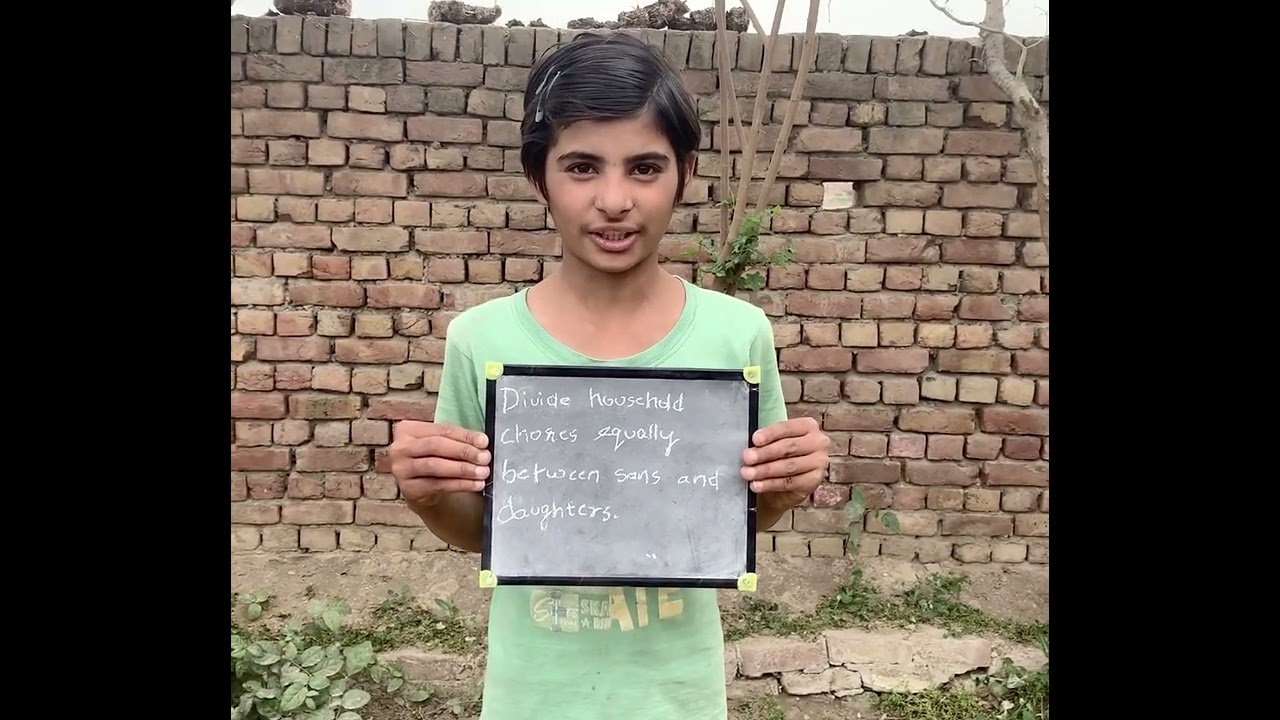 Divide household
chores equally
between sons and
daughters.
SKA